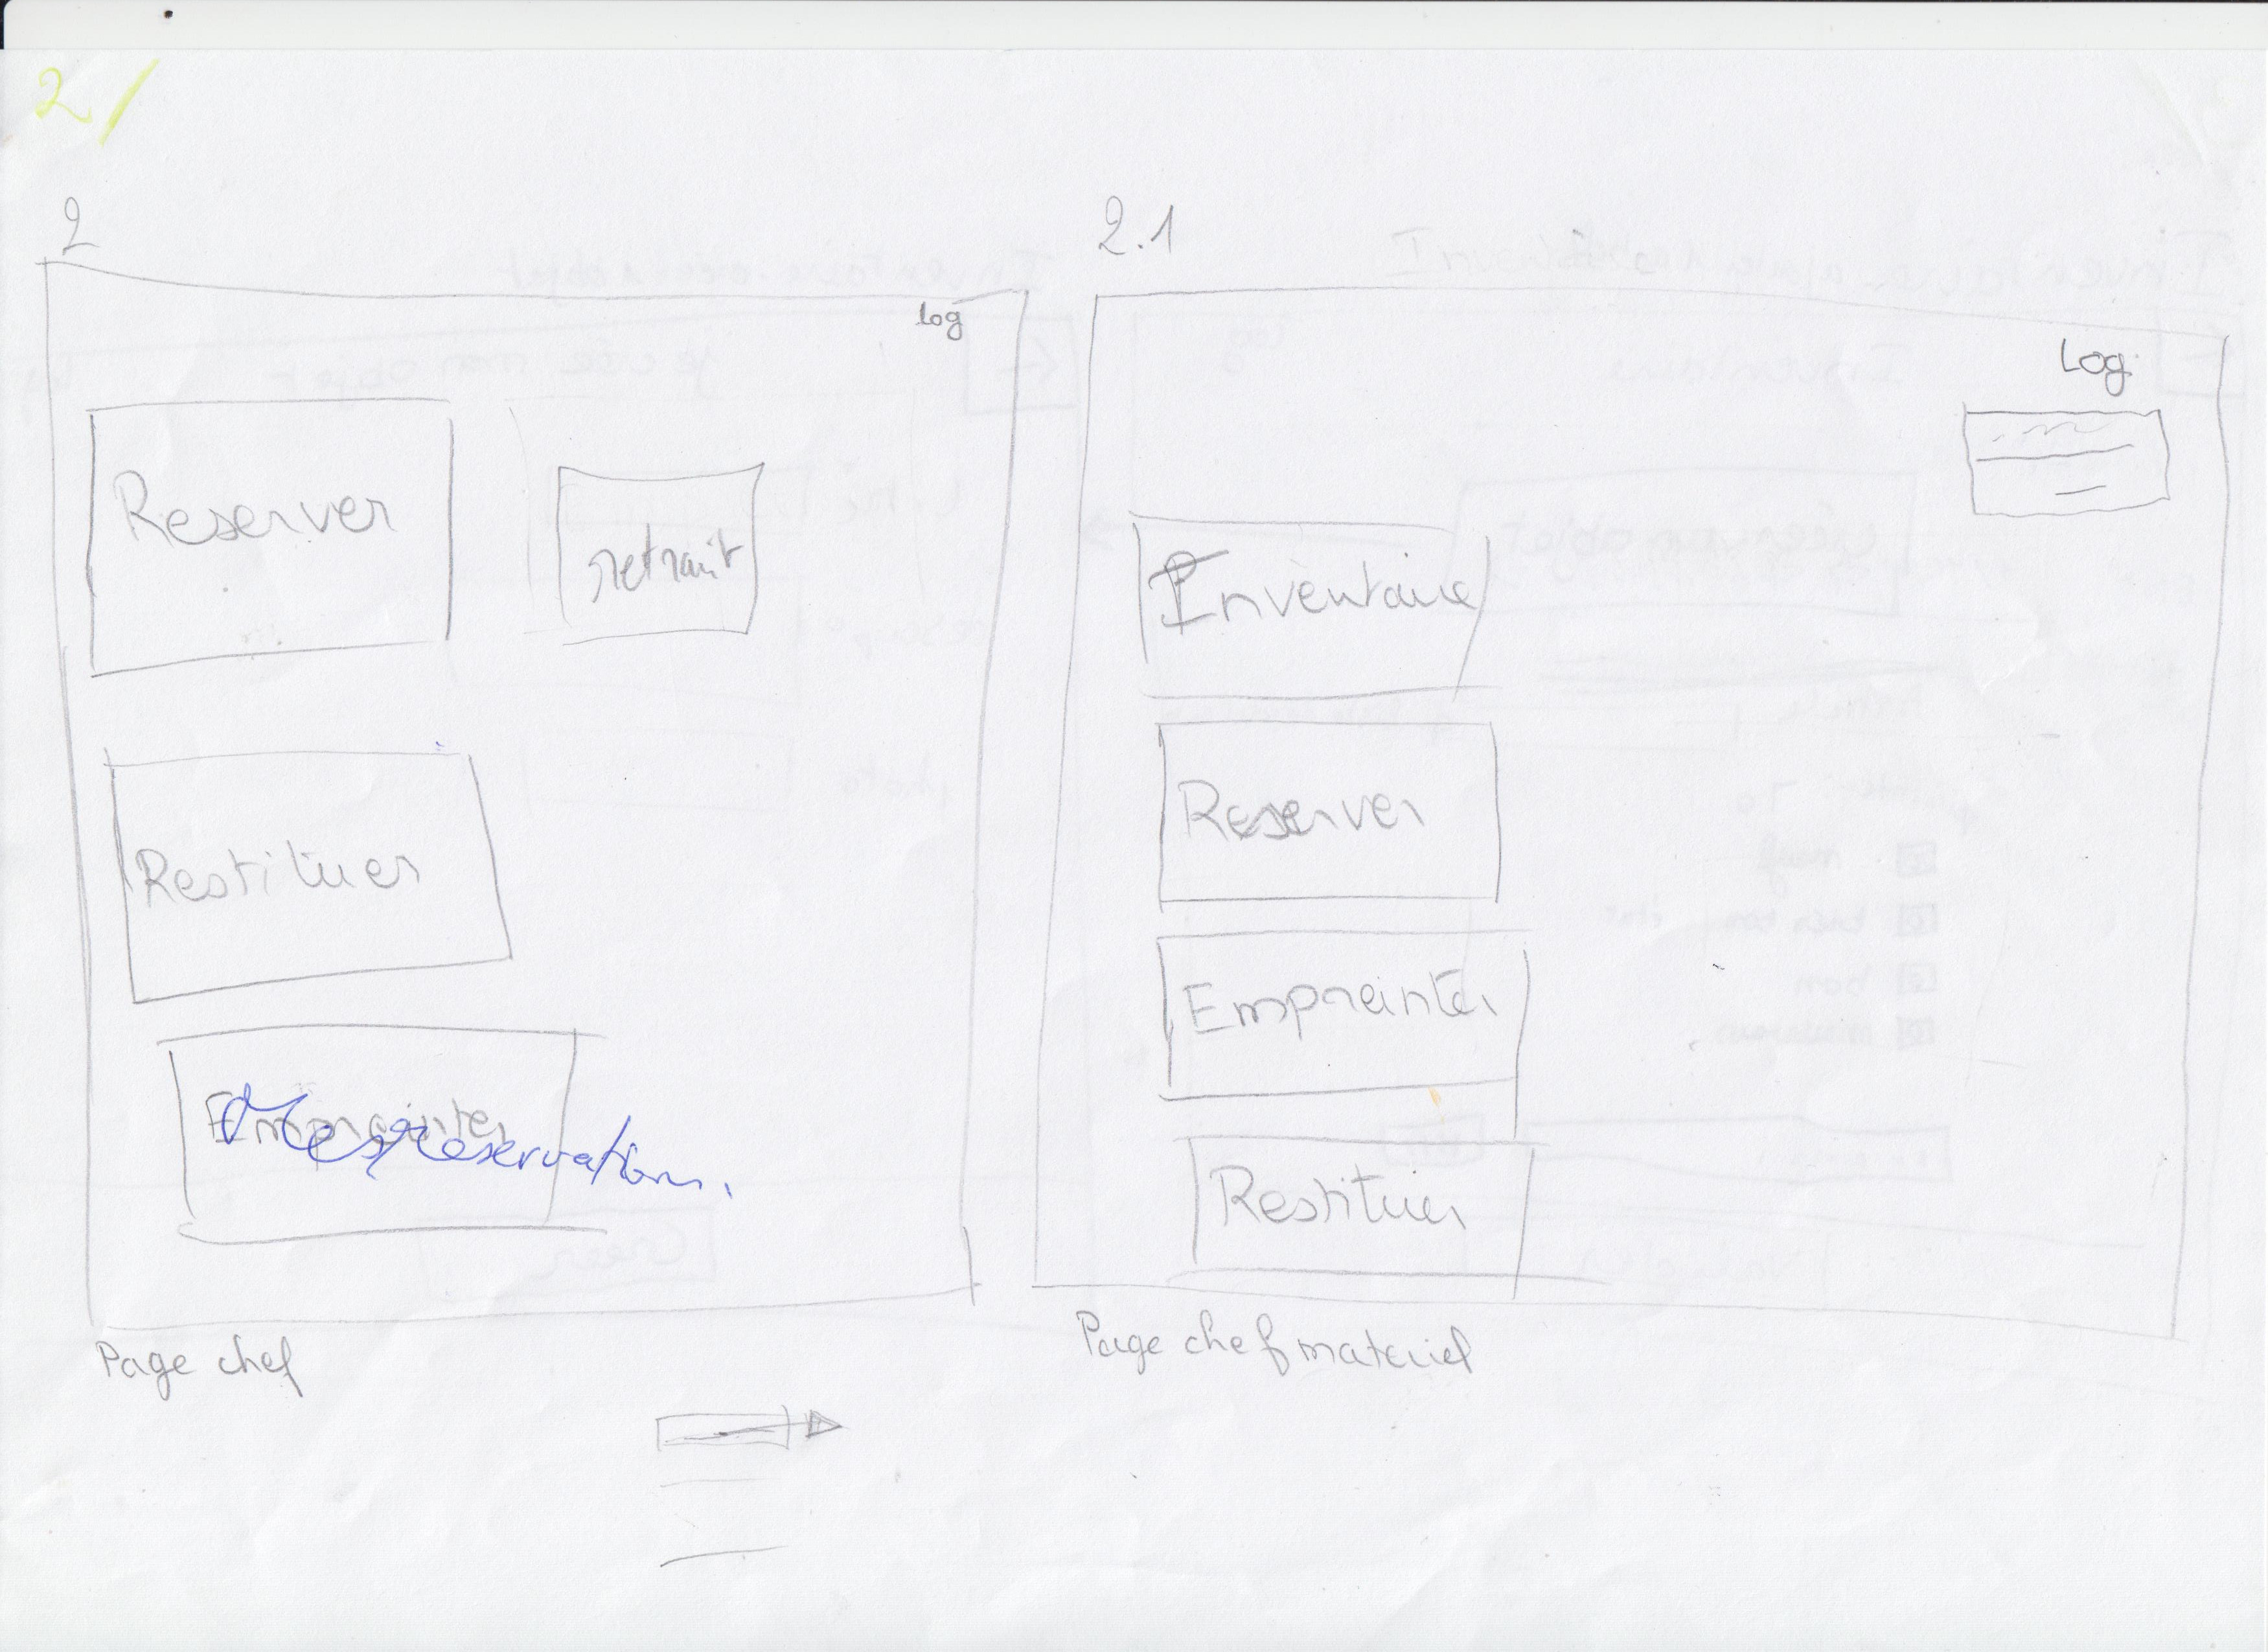 2/
2
log
Reserver
retrait
Restituer
Empreinter
Mes reservations.
Page chef
2.1
Log
Inventaire
Reserver
Empreinter
Restituer
Page chef materiel